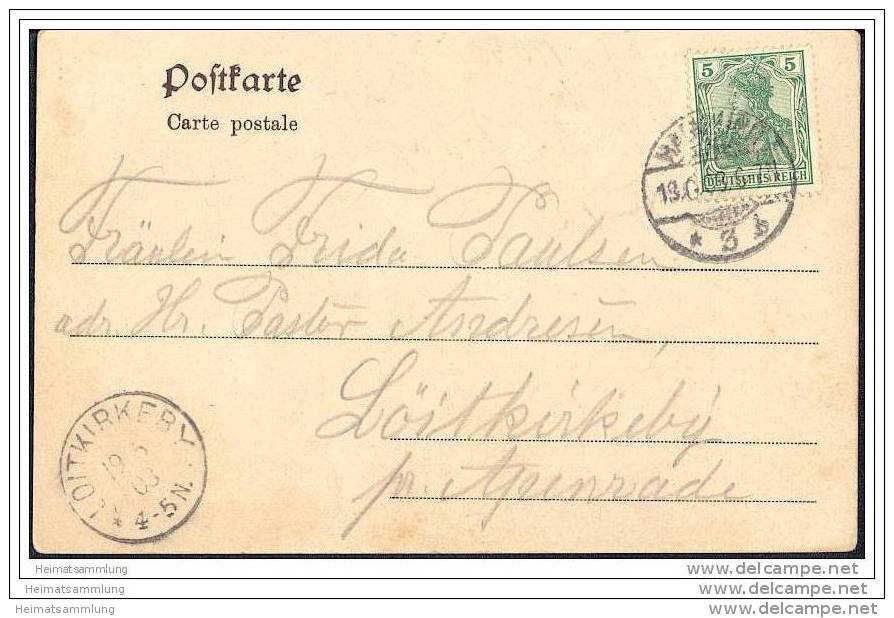 Postkarte
Carte postale
5 5
DEUTSCHES REICH
18.6.03.
* 3 b
Fräulein Frida Paulsen
adr. Hr. Pastor Andresen,
Löitkirkeby
pr. Apenrade
LOITKIRKEBY
19 6
03
* 4-5N.
Heimatsammlung www.delcampe.net
Heimatsammlung www.delcampe.net
Heimatsammlung www.delcampe.net